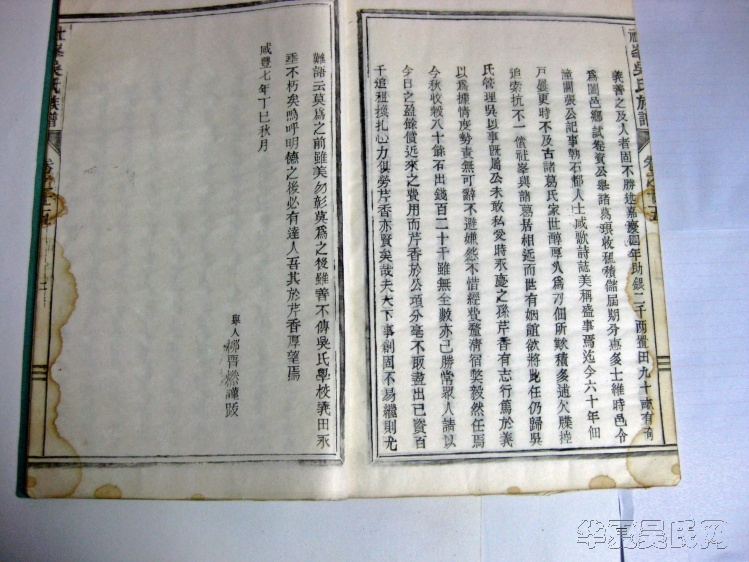 社峯吳氏族譜
義舉之及人者固不勝述嘉慶四年助銀二千兩置田九十畝有奇
為闔邑鄉試卷資公舉諸萬頃收租積儲屆期分惠多士維時邑令
潼關張公記事勒石郁人士咸歌詩誌美稱盛事焉迄今六十年佃
戶屢更時不及古諸葛氏家世醇厚久為刁佃所欺積多逋欠牒控
追索抗不一償社峯與諸葛居相近而世有姻誼欲將此任仍歸吳
氏管理吳以事既屬公未敢私愛時永慶之孫芹香有志行篤於義
以為據情度勢責無可辭不避嫌然不惜經費釐清宿獘毅然任焉
今秋收穀八十餘石出錢百二十千雖無全數亦已勝常眾人請以
今日之盈餘償近來之費用而芹香於公項分毫不取盡出己資百
千追租換札心力俱勞芹香亦賢矣哉夫天下事創固不易繼則尤
難語云莫為之前雖美勿彰莫為之後雖善不傳吳氏學校義田永
垂不朽矣嗚呼明德之後必有達人吾其於芹香厚望焉
咸豐七年丁巳秋月
舉人柳晉謹跋
社峯吳氏族譜
华夏吴氏网